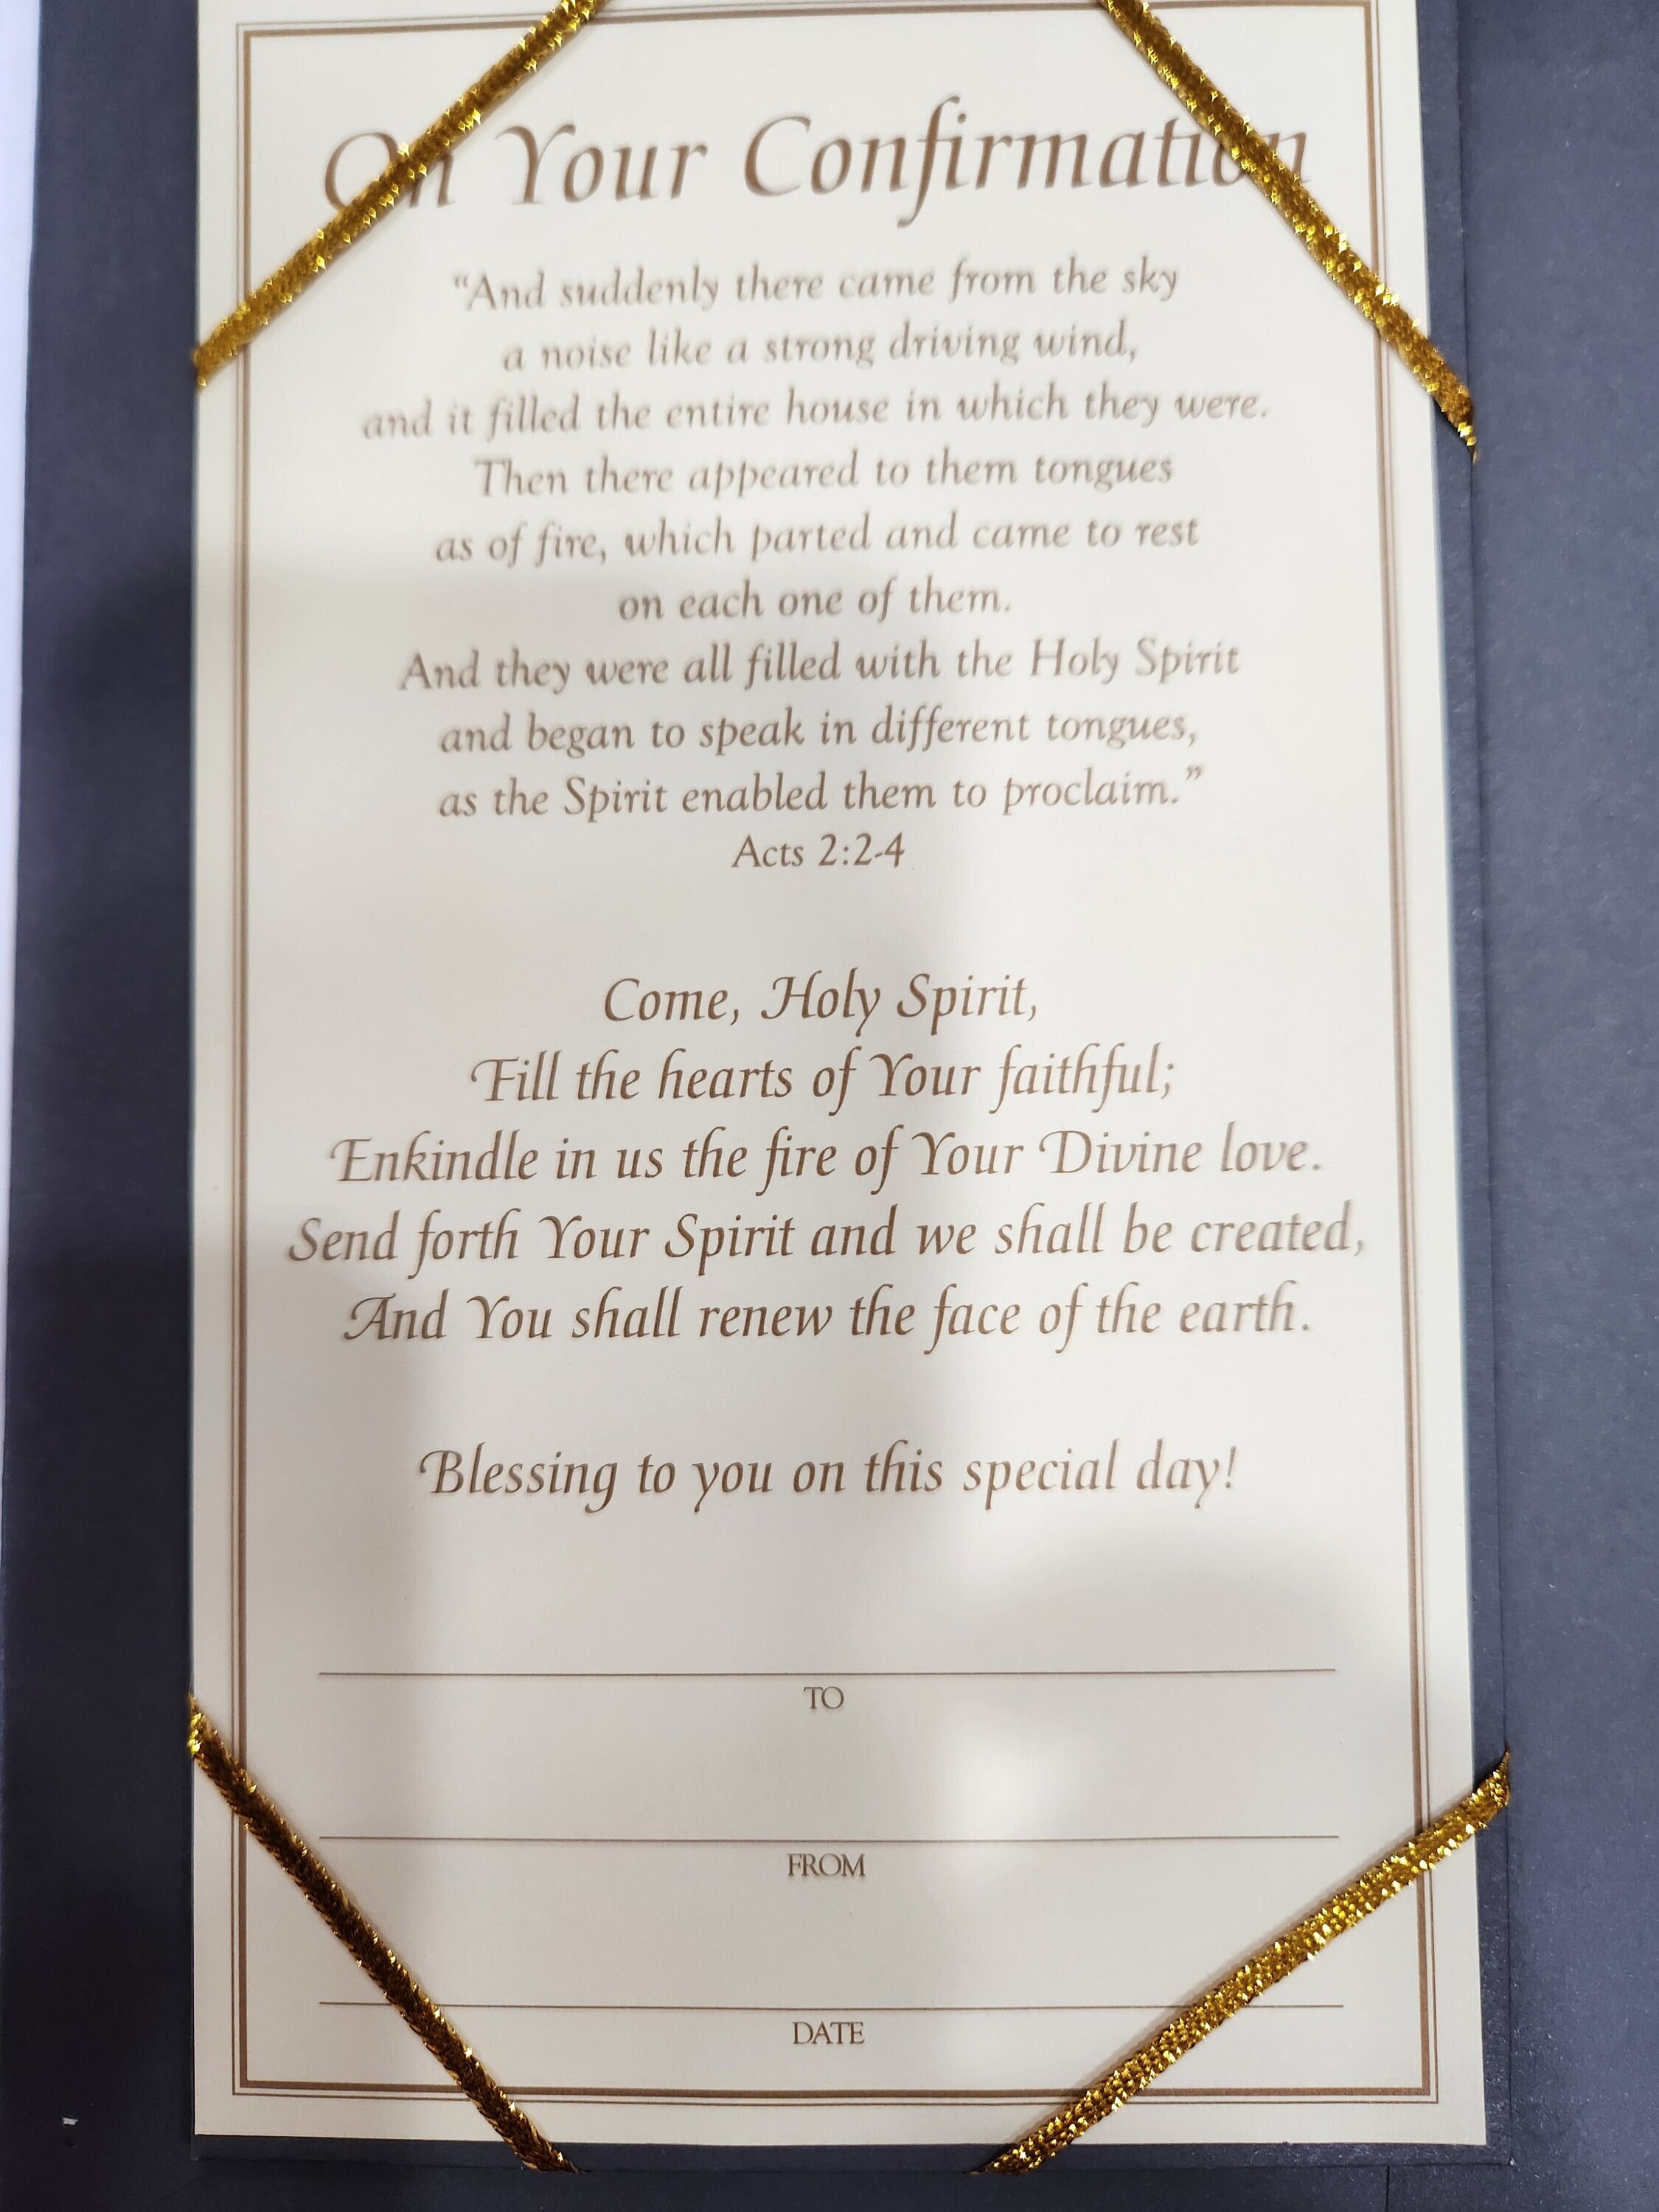 On Your Confirmation
“And suddenly there came from the sky
a noise like a strong driving wind,
and it filled the entire house in which they were.
Then there appeared to them tongues
as of fire, which parted and came to rest
on each one of them.
And they were all filled with the Holy Spirit
and began to speak in different tongues,
as the Spirit enabled them to proclaim.”
Acts 2:2-4
Come, Holy Spirit,
Fill the hearts of Your faithful;
Enkindle in us the fire of Your Divine love.
Send forth Your Spirit and we shall be created,
And You shall renew the face of the earth.
Blessing to you on this special day!
TO
FROM
DATE